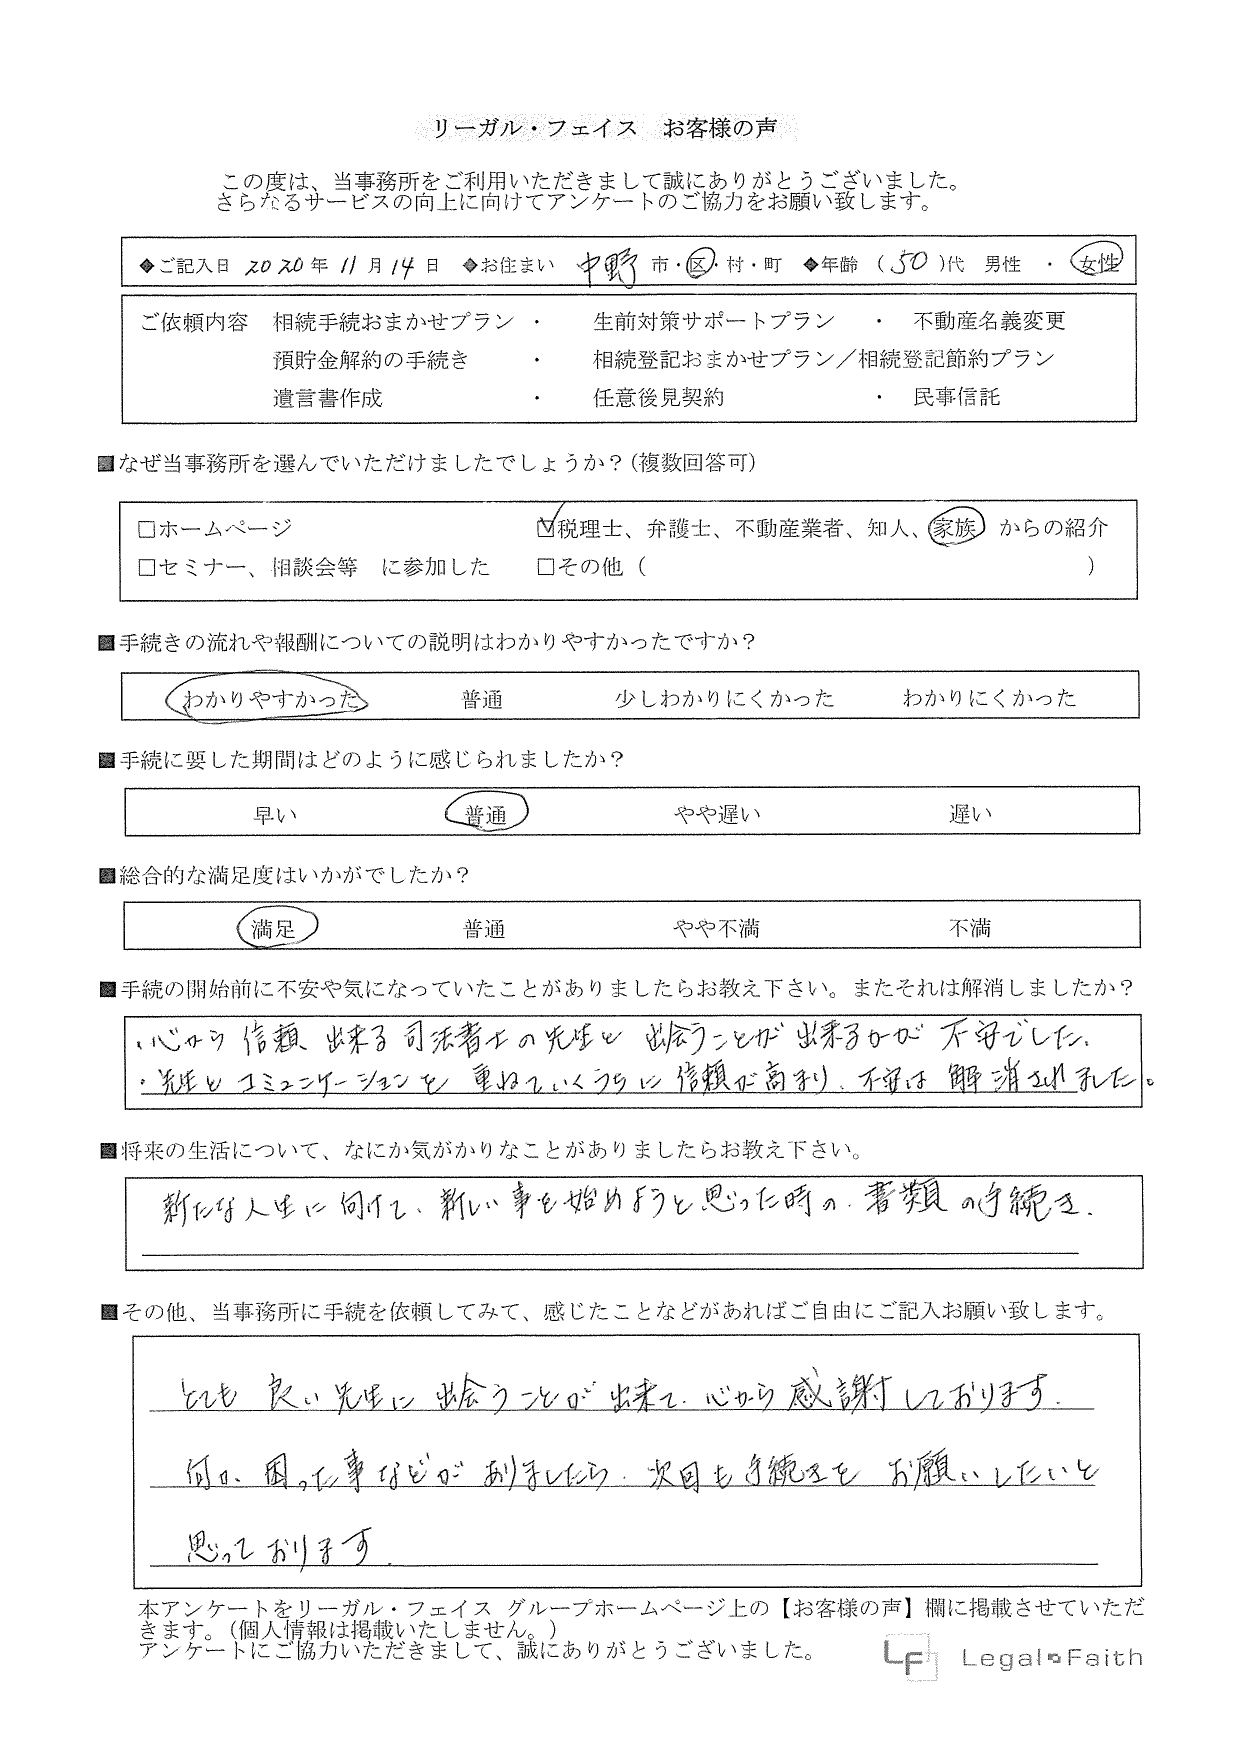 リーガル・フェイス　お客様の声
この度は、当事務所をご利用いただきまして誠にありがとうございました。
さらなるサービスの向上に向けてアンケートのご協力をお願い致します。
◆ご記入日 2020年 11月 14日 ◆お住まい 中野 市・区・村・町 ◆年齢 (50)代 男性 ・ 女性
ご依頼内容 相続手続おまかせプラン ・ 生前対策サポートプラン ・ 不動産名義変更
預貯金解約の手続き ・ 相続登記おまかせプラン／相続登記節約プラン
遺言書作成 ・ 任意後見契約 ・ 民事信託
■なぜ当事務所を選んでいただけましたでしょうか？(複数回答可)
□ホームページ ☑税理士、弁護士、不動産業者、知人、家族 からの紹介
□セミナー、相談会等 に参加した □その他 ( )
■手続きの流れや報酬についての説明はわかりやすかったですか？
わかりやすかった 普通 少しわかりにくかった わかりにくかった
■手続に要した期間はどのように感じられましたか？
早い 普通 やや遅い 遅い
■総合的な満足度はいかがでしたか？
満足 普通 やや不満 不満
■手続の開始前に不安や気になっていたことがありましたらお教え下さい。またそれは解消しましたか？
・心から信頼出来る司法書士の先生と出会うことが出来るかが不安でした。
・先生とコミュニケーションを重ねていくうちに信頼が高まり、不安は解消されました。
■将来の生活について、なにか気がかりなことがありましたらお教え下さい。
新たな人生に向けて、新しい事を始めようと思った時の、書類の手続き。
■その他、当事務所に手続を依頼してみて、感じたことなどがあればご自由にご記入お願い致します。
とても良い先生に出会うことが出来て、心から感謝しております。
何か、困った事などがありましたら、次回も手続きをお願いしたいと
思っております。
本アンケートをリーガル・フェイス グループホームページ上の【お客様の声】欄に掲載させていただ
きます。（個人情報は掲載いたしません。）
アンケートにご協力いただきまして、誠にありがとうございました。
LF Legal Faith